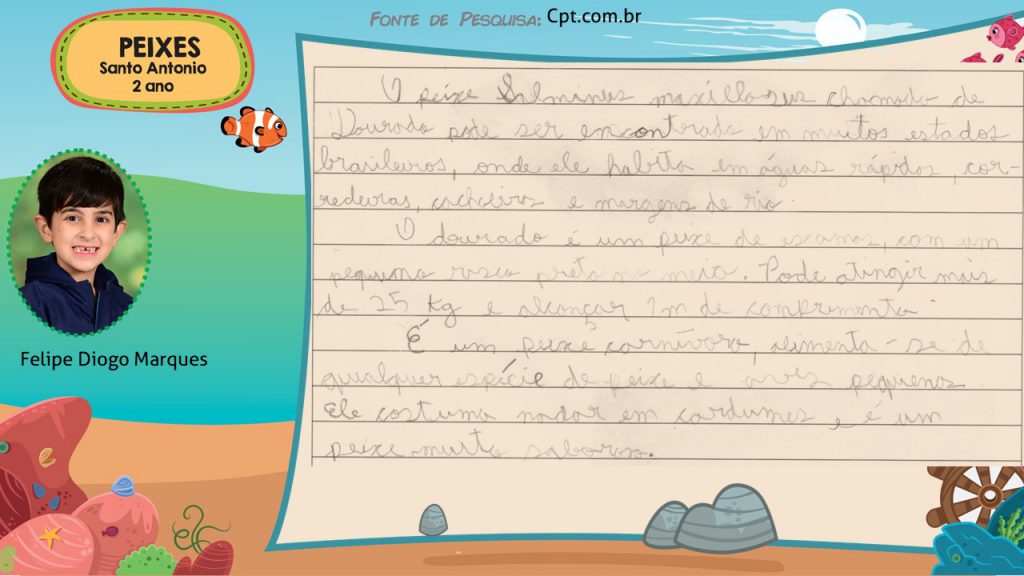 FONTE DE PESQUISA: Cpt.com.br
PEIXES
Santo Antonio
2 ano
Felipe Diogo Marques
O peixe Salminus maxillosus chamado de
Dourado pode ser encontrado em muitos estados
brasileiros, onde ele habita em águas rápidas, cor-
redeiras, cachoeiras e margens de rio.
O dourado é um peixe de escamas, com um
pequena risca preta no meio. Pode atingir mais
de 25 kg e alcançar 1m de comprimento.
É um peixe carnívoro, alimenta-se de
qualquer espécie de peixe e aves pequenas.
Ele costuma nadar em cardumes e é um
peixe muito saboroso.